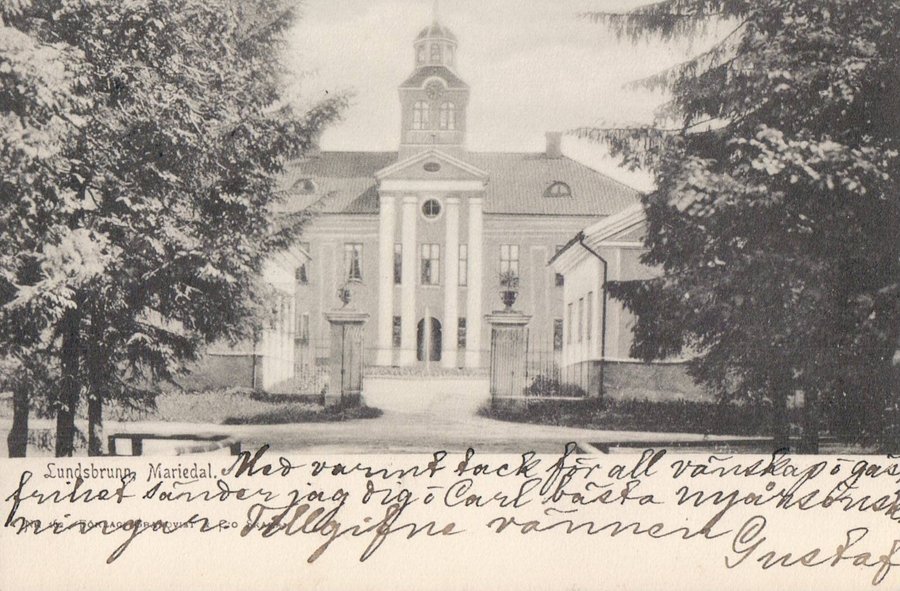 Lundsbrunn, Mariedal. Med varmt tack för all vänskap o gäst
frihet sänder jag dig o Carl bästa nyårsönsk
ningar Tillgifne vännen
Gustaf